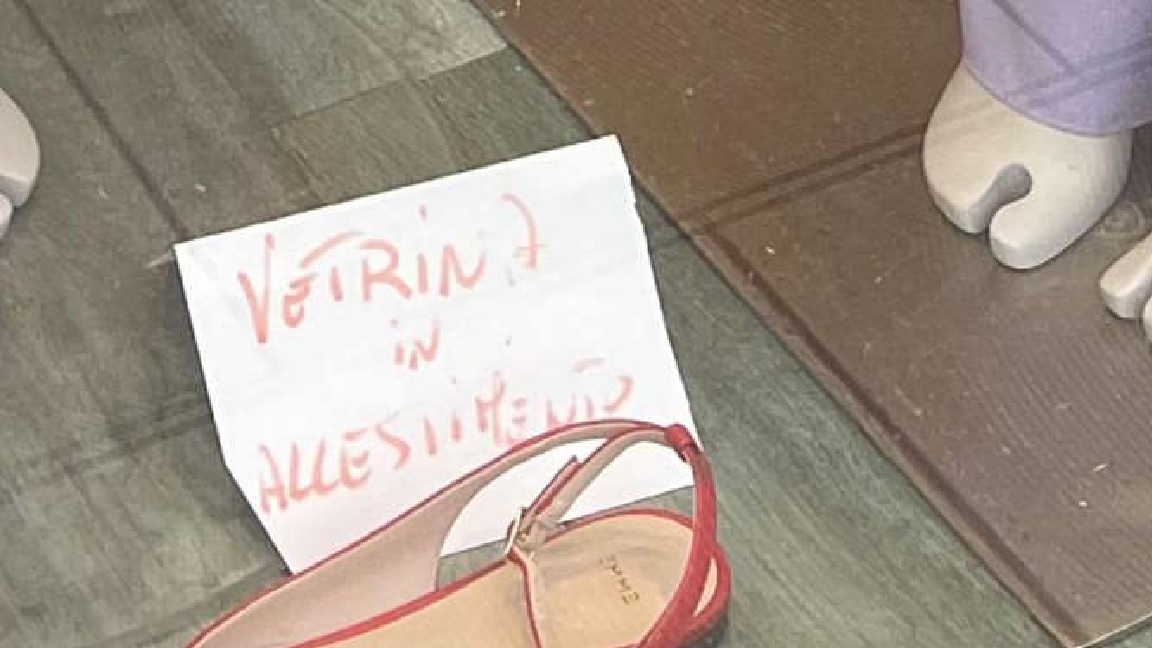 VETRINA
iN
ALLESTIMENTO